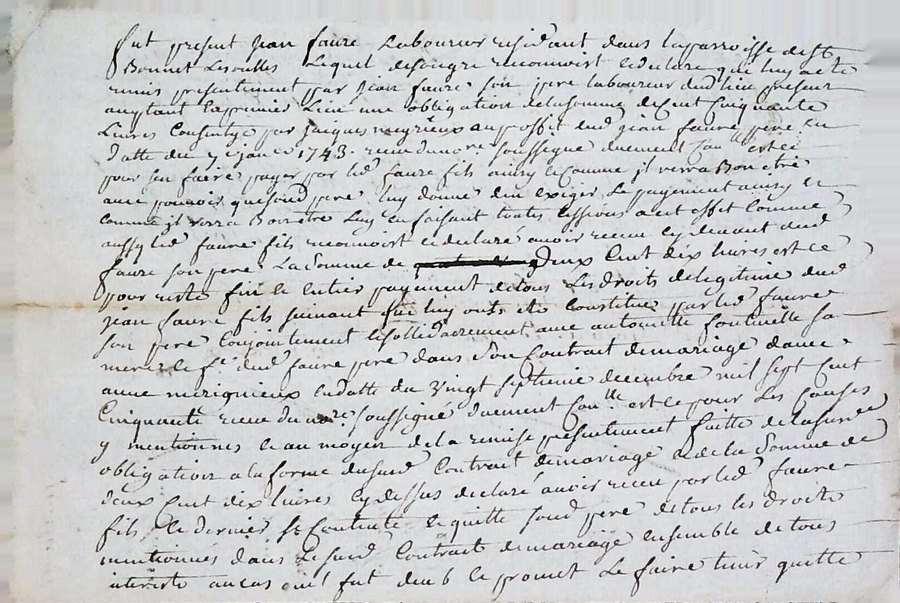 fut present Jean faure Laboureur residant dans laparroisse de st
Bonnet Lesoulles Lequel desongre reconnoist & declare que luy a ete
remis presentement par Jean faure son pere laboureur dud lieu present
acceptant une obligation delasomme de Cent Cinquante
Livres Consentye par Jacques neyrieux au proffit dud jean faure pere en
datte du janer 1743. receu du nore soussigné duement Conlle est ce
pour sen faire payer par led faure fils ainsy & comme jl verra Bon etre
avec pouvoir que sond pere luy donne den exiger Le payement ainsy et
comme jl verra Bon etre Luy en faisant toutes cessions a cet effet Comme
aussy led faure fils reconnoist & declaré avoir receu cy devant dud
faure son pere La Somme de deux Cent dix livres est ce
pour reste fin & entier payement de tous Les droits de legitime dud
jean faure fils suivant qui luy onts ete Constitué par led faure
son pere Conjointement & sollidairement avec antoinette fontinelle sa
mere & fe dud faure pere dans Son Contrat de mariage davec
anne merignieux en datte du Vingt septieme decembre mil sept Cent
Cinquante receu du nore soussigné duement Conlle est ce pour Les Causes
y mentionnes & au moyen de la remise presentement faitte de lasusde
obligation a la forme dusud Contrat demariage & de la Somme de
deux Cent dix livres cy dessus declaré avoir receu par led faure
fils Ce dernier se Contente & quitte sond pere de tous les droits
mentionnes dans Le susd Contrat demariage ensemble de tous
interests au cas quil fut deub & promet Le faire tenir quitte